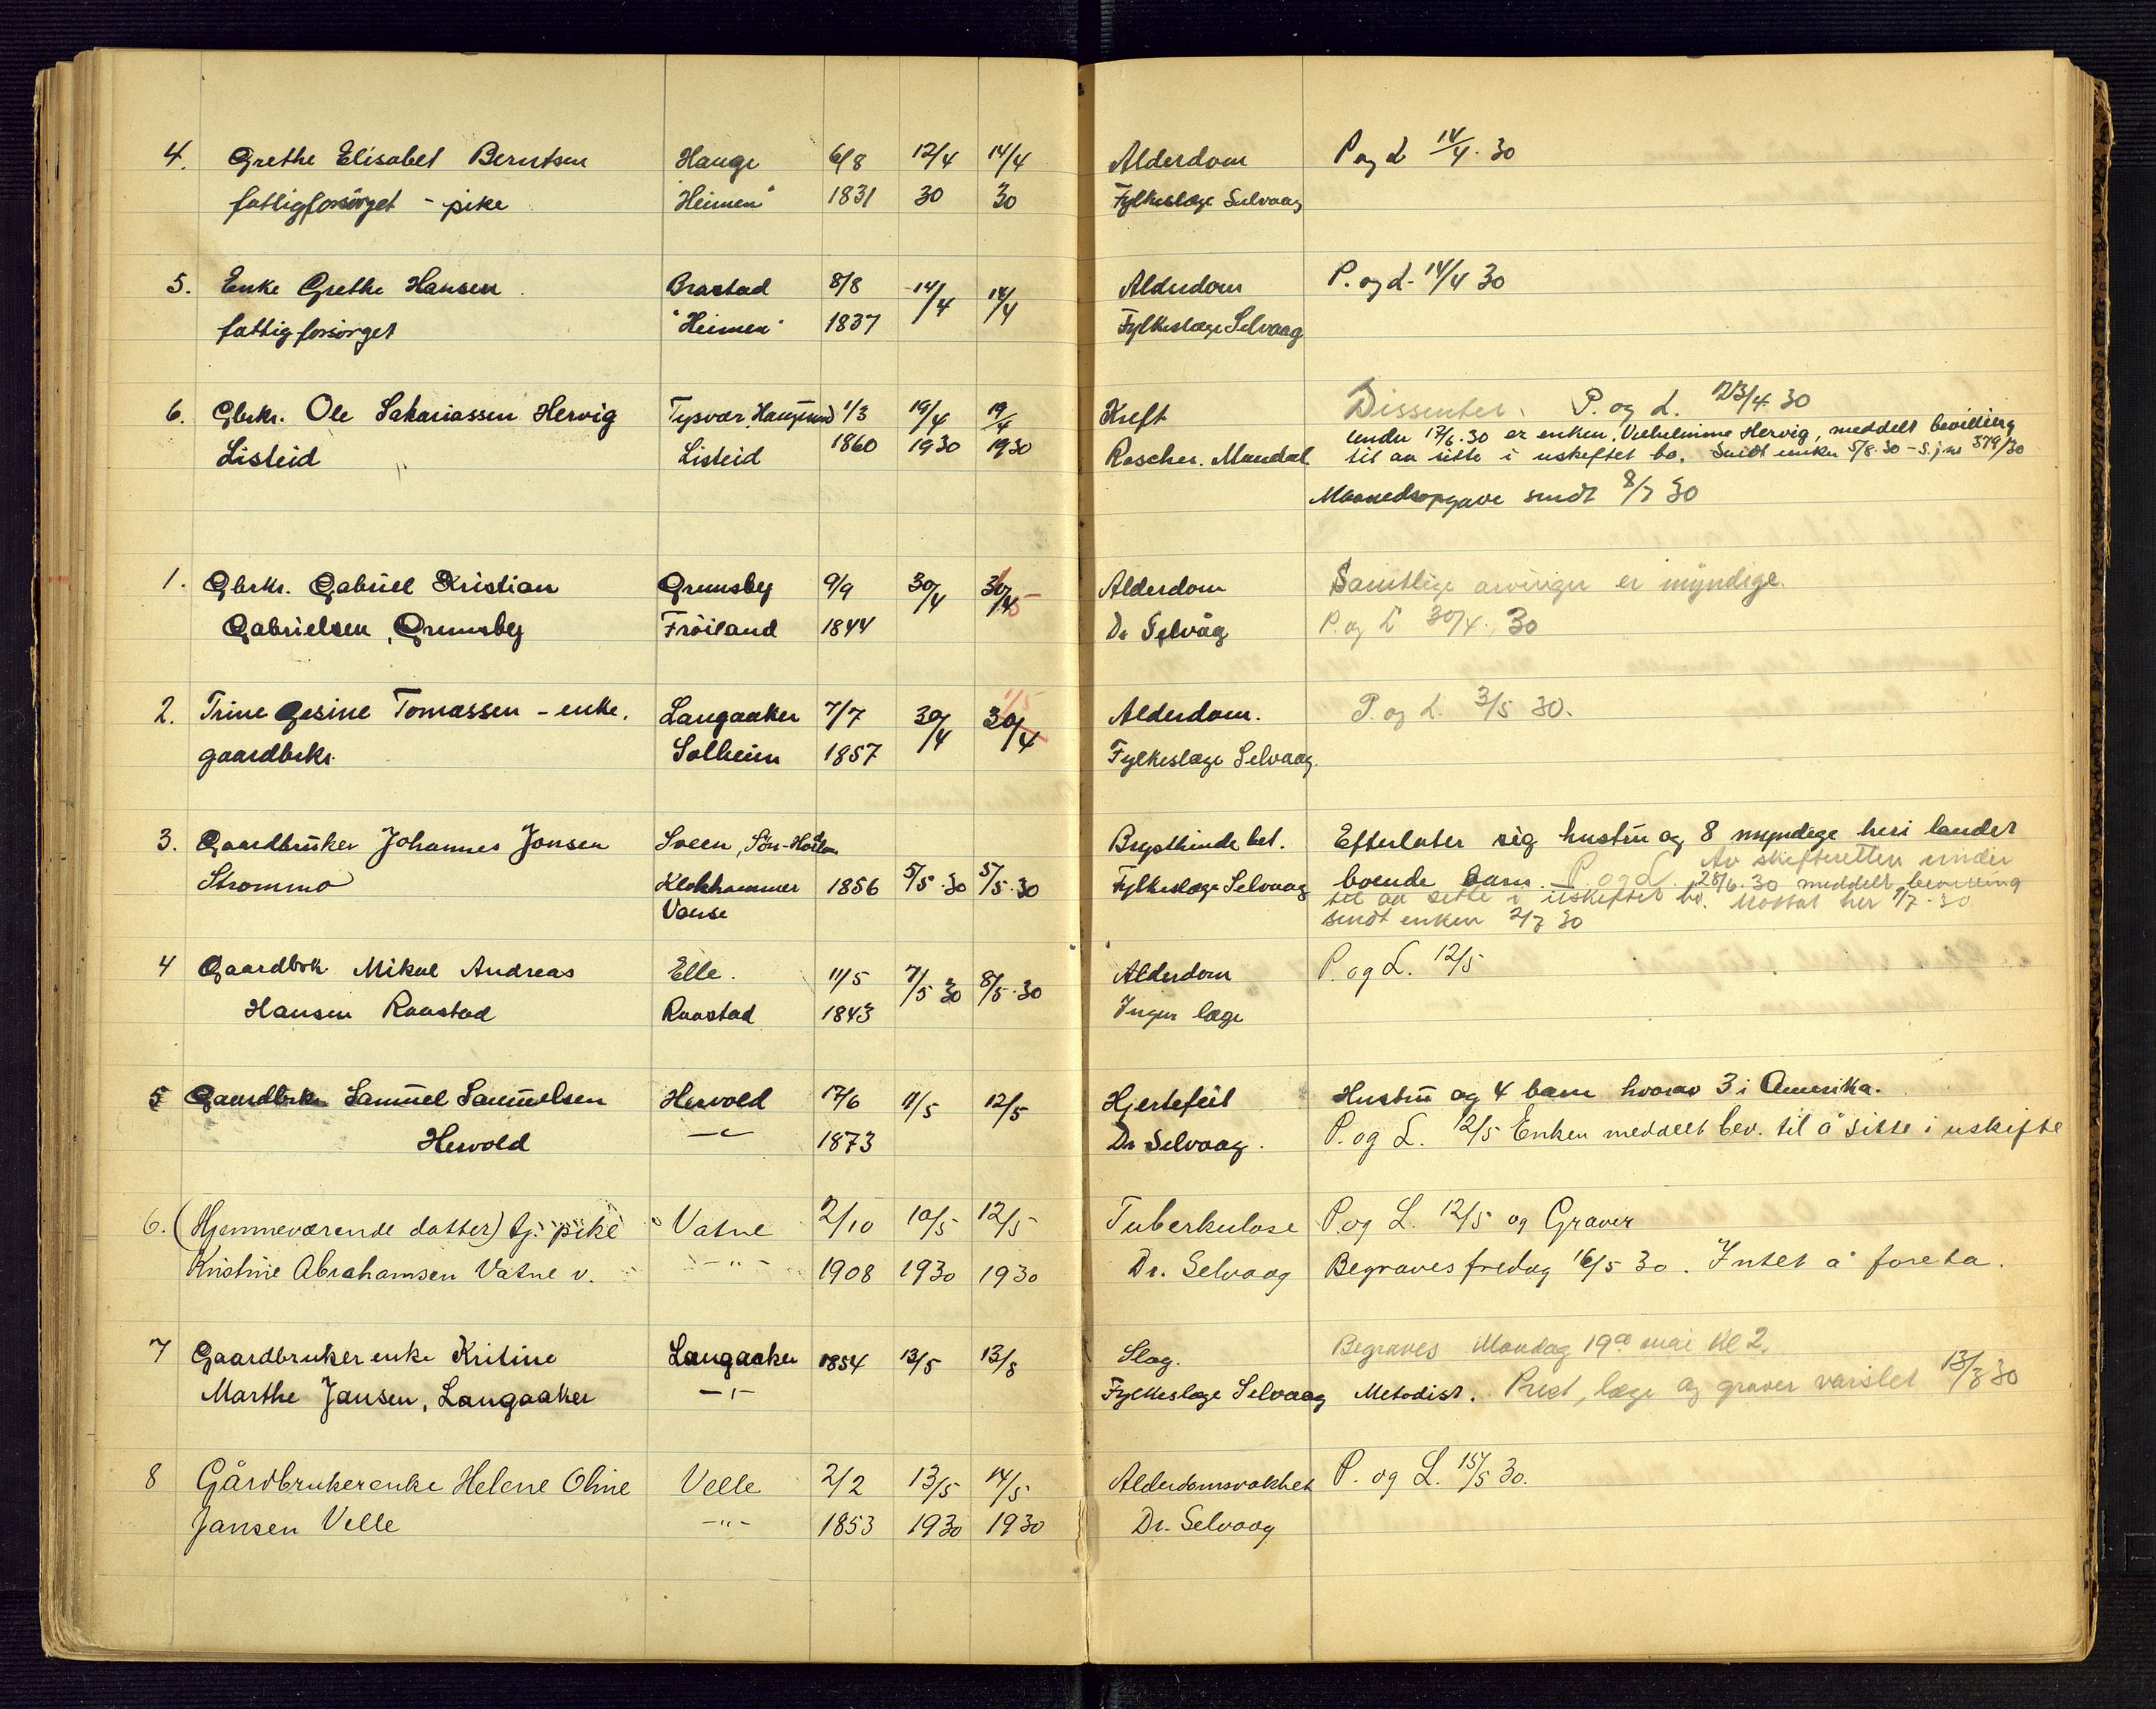 4. Grethe Elisabet Berntsen Hauge 6/8 12/4 14/4 Alderdom P og L 14/4. 30
fattigforsörget - pike "Heimen" 1831 30 30 Fylkeslæge Selvaag
5. Enke Grethe Hansen. Brastad 8/8 14/4 14/4 Alderdom P. og L. 14/4 30
fattigforsörget "Heimen" 1837 Fylkeslæge Selvaag
6. Gbrkr. Ole Sakariassen Hervig Tysvær, 1/3 19/4 19/4 Kreft Dissenter. P. og L. 23/4 30
under 17/6.30 er enken, Vilhelmine Hervig, meddelt bevilling
Listeid Listeid 1860 1930 1930 Roscher. Mandal til aa sitte i uskiftet bo. Sendt enken 5/8.30 - S.j. nr 379/30
Maanedsopgave sendt 8/7 30
1. Gbrkr. Gabriel Kristian Ormsby 9/9 30/4 Alderdom Samtlige arvinger er myndige.
Gabrielsen, Ormsby Fröiland 1844 Dr Selvåg P. og L 30/4. 30
2. Trine Gesine Tomassen - enke. Langaaker 7/7 30/4 30/4 1/5 Alderdom. P. og L. 3/5 30.
gaardbrkr. Solheim 1857 Fylkeslæge Selvaag.
3. Gaardbruker Johannes Jonsen Sveen, Brysthindebet. Efterlater sig hustru og 8 myndige her i landet
Strommo Klokhammer 1856 5/5 30 5/5.30 Fylkeslæge Selvaag boende barn. P og L. Av skifteretten under
28/6.30 meddelt bevilling
Vanse til aa sitte i uskiftet bo. Mottat her 1/7-30
sendt enken 2/7 30
4 Gaardbrk Mikal Andreas Elle. 11/5 7/5 30 8/5.30 Alderdom P. og L. 12/5
Hansen Raastad Raastad 1843 Ingen læge
5 Gaardbrk Samuel Samuelsen Hervold 17/6 11/5 12/5 Hjertefeil Hustru og 4 barn hvorav 3 i Amerika.
Hervold -"- 1873 Dr Selvaag. P. og L. 12/5 Enken meddelt bev. til å sitte i uskifte
6. (Hjemmeværende datter) tj. pike Vatne 2/10 10/5 12/5 Tuberkulose P. og L. 12/5 og Graver
Kristine Abrahamsen Vatne v. -"- 1908 1930 1930 Dr. Selvaag Begraves fredag 16/5 30. Intet å foreta.
7 Gaardbruker enke Kritine Langaaker 1854 13/5 Slag. Begraves Mandag 19de mai kl 2.
Marthe Jansen, Langaaker -"- Fylkeslæge Selvaag Metodist. Prest, læge og graver varslet
8 Gårdbrukerenke Helene Oline Velle 2/2 13/5 14/5 Alderdomsvakhet P. og L. 15/5 30.
Jansen Velle -"- 1853 1930 1930 Dr. Selvaag